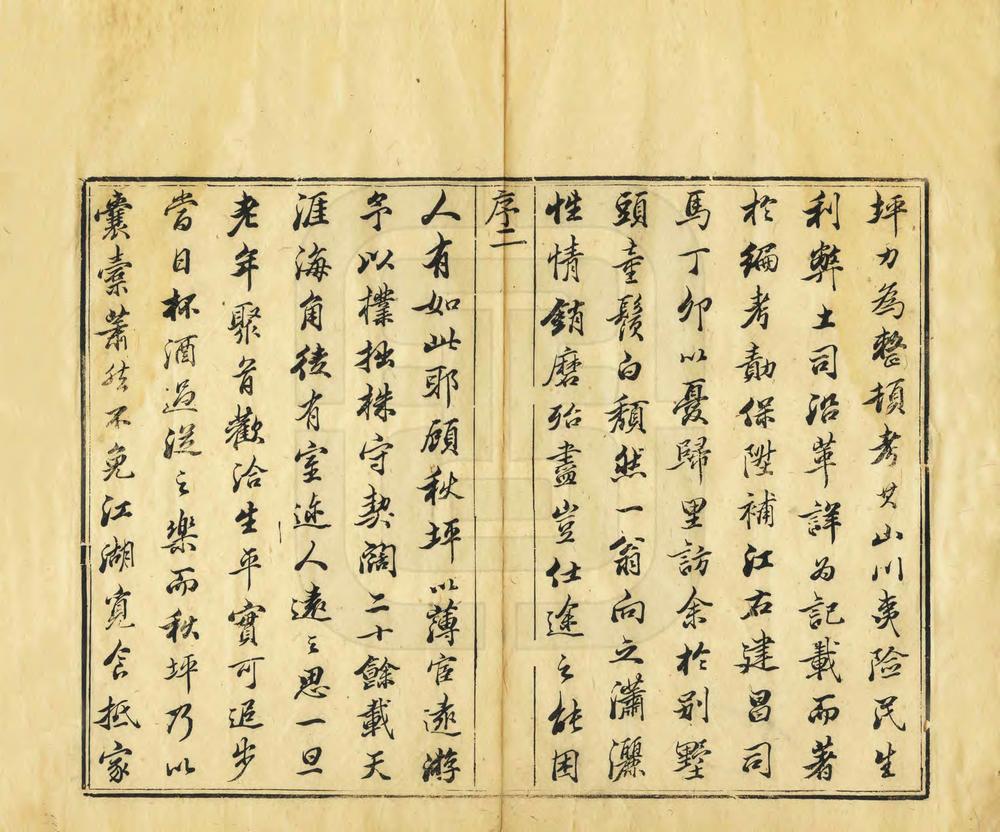 坪力為整頓考其山川夷险民生
利弊土司沿革詳为記載而著
於編考勣保陞補江右建昌司
馬丁卯以憂歸里訪余於别墅
頭童鬚白頹然一翁向之瀟灑
性情銷磨殆盡豈仕途之能困
序二
人有如此耶顧秋坪以薄宦遠游
予以樸拙株守契闊二十餘載天
涯海角徒有室迩人遠之思一旦
老年聚首歡洽生平實可追步
當日杯酒過從之樂而秋坪乃以
囊橐萧然不免江湖覓食抵家